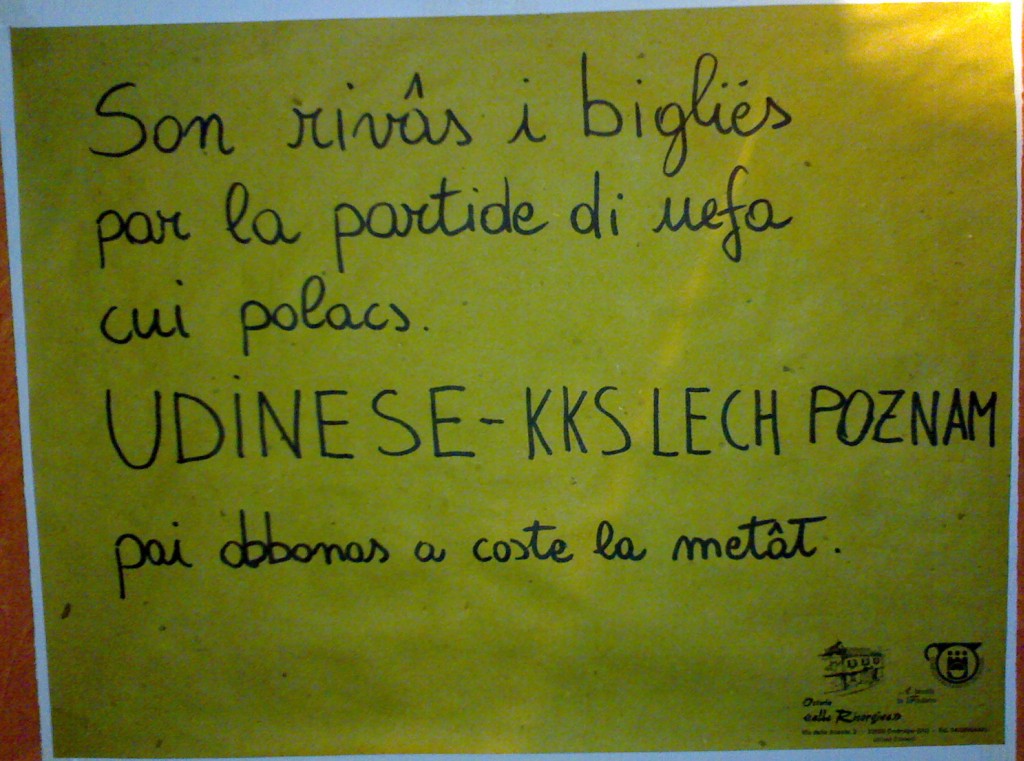 Son rivâs i bigliës
par la partide di uefa
cui polacs.
UDINESE-KKS LECH POZNAM
pai abbonas a coste la metât.
Osteria